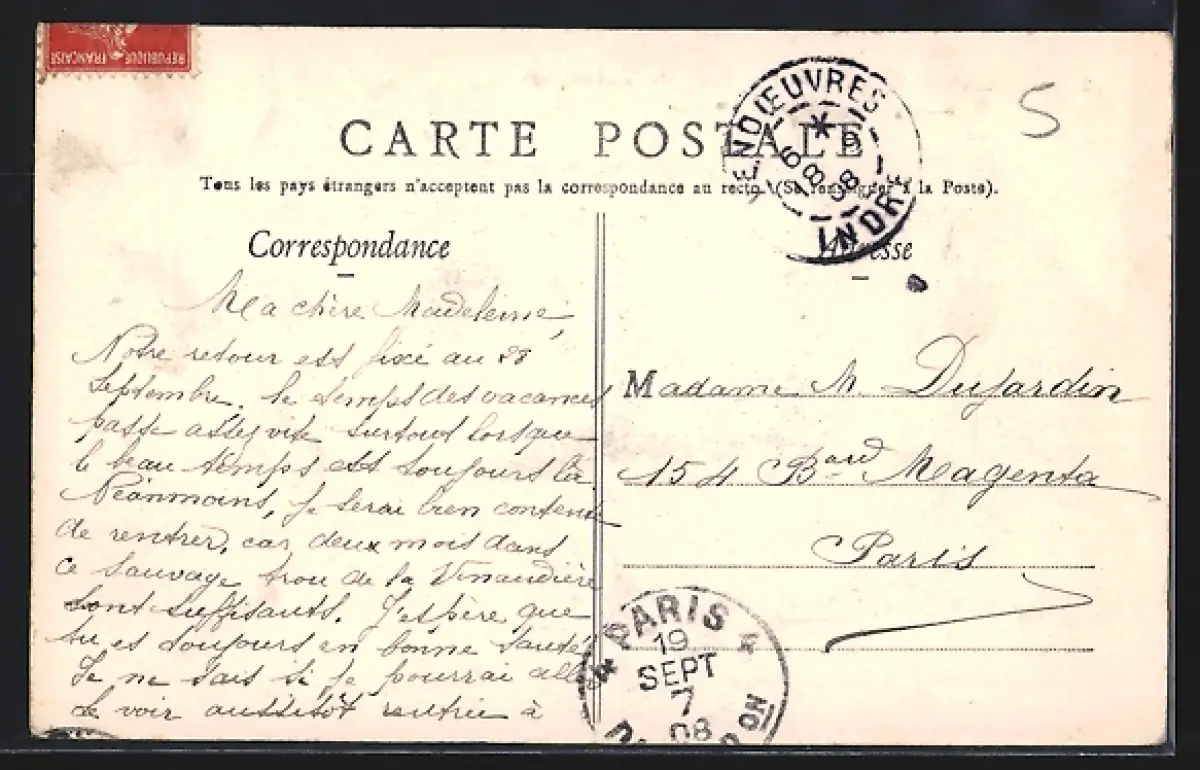 REPUBLIQUE FRANÇAISE
5
CARTE POSTALE
Tous les pays étrangers n'acceptent pas la correspondance au recto (Se renseigner à la Poste).
VENDŒUVRES
*
INDRE
Correspondance
Adresse
Ma chère Madeleine,
Notre retour est fixé au 28
Septembre. le temps des vacances
passe assez vite surtout lorsque
le beau temps est toujours là.
Néanmoins, je serai bien contente
de rentrer, car deux mois dans
ce sauvage trou de la Vinaudière
sont suffisants. J'espère que
tu es toujours en bonne santé.
Je ne sais si je pourrai aller
te voir aussitôt rentrée à
Madame M. Dujardin
154 Bard Magenta
Paris
PARIS
19
SEPT
7
08